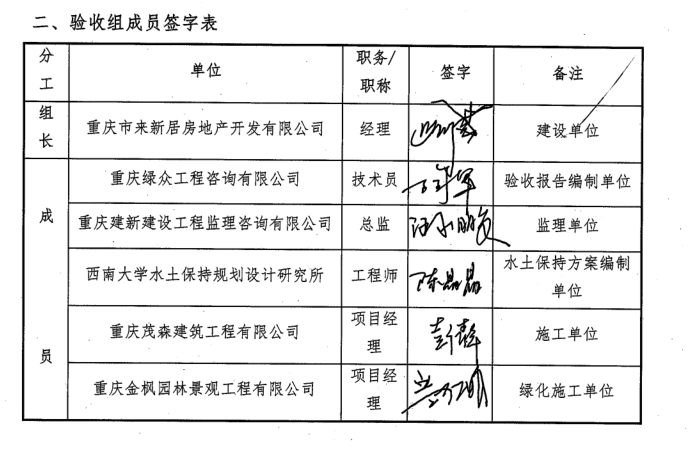 二、验收组成员签字表
分工 单位 职务/职称 签字 备注
组长 重庆市来新居房地产开发有限公司 经理 建设单位
成员 重庆绿众工程咨询有限公司 技术员 验收报告编制单位
重庆建新建设工程监理咨询有限公司 总监 监理单位
西南大学水土保持规划设计研究所 工程师 陈晶晶 水土保持方案编制单位
重庆茂森建筑工程有限公司 项目经理 施工单位
重庆金枫园林景观工程有限公司 项目经理 绿化施工单位